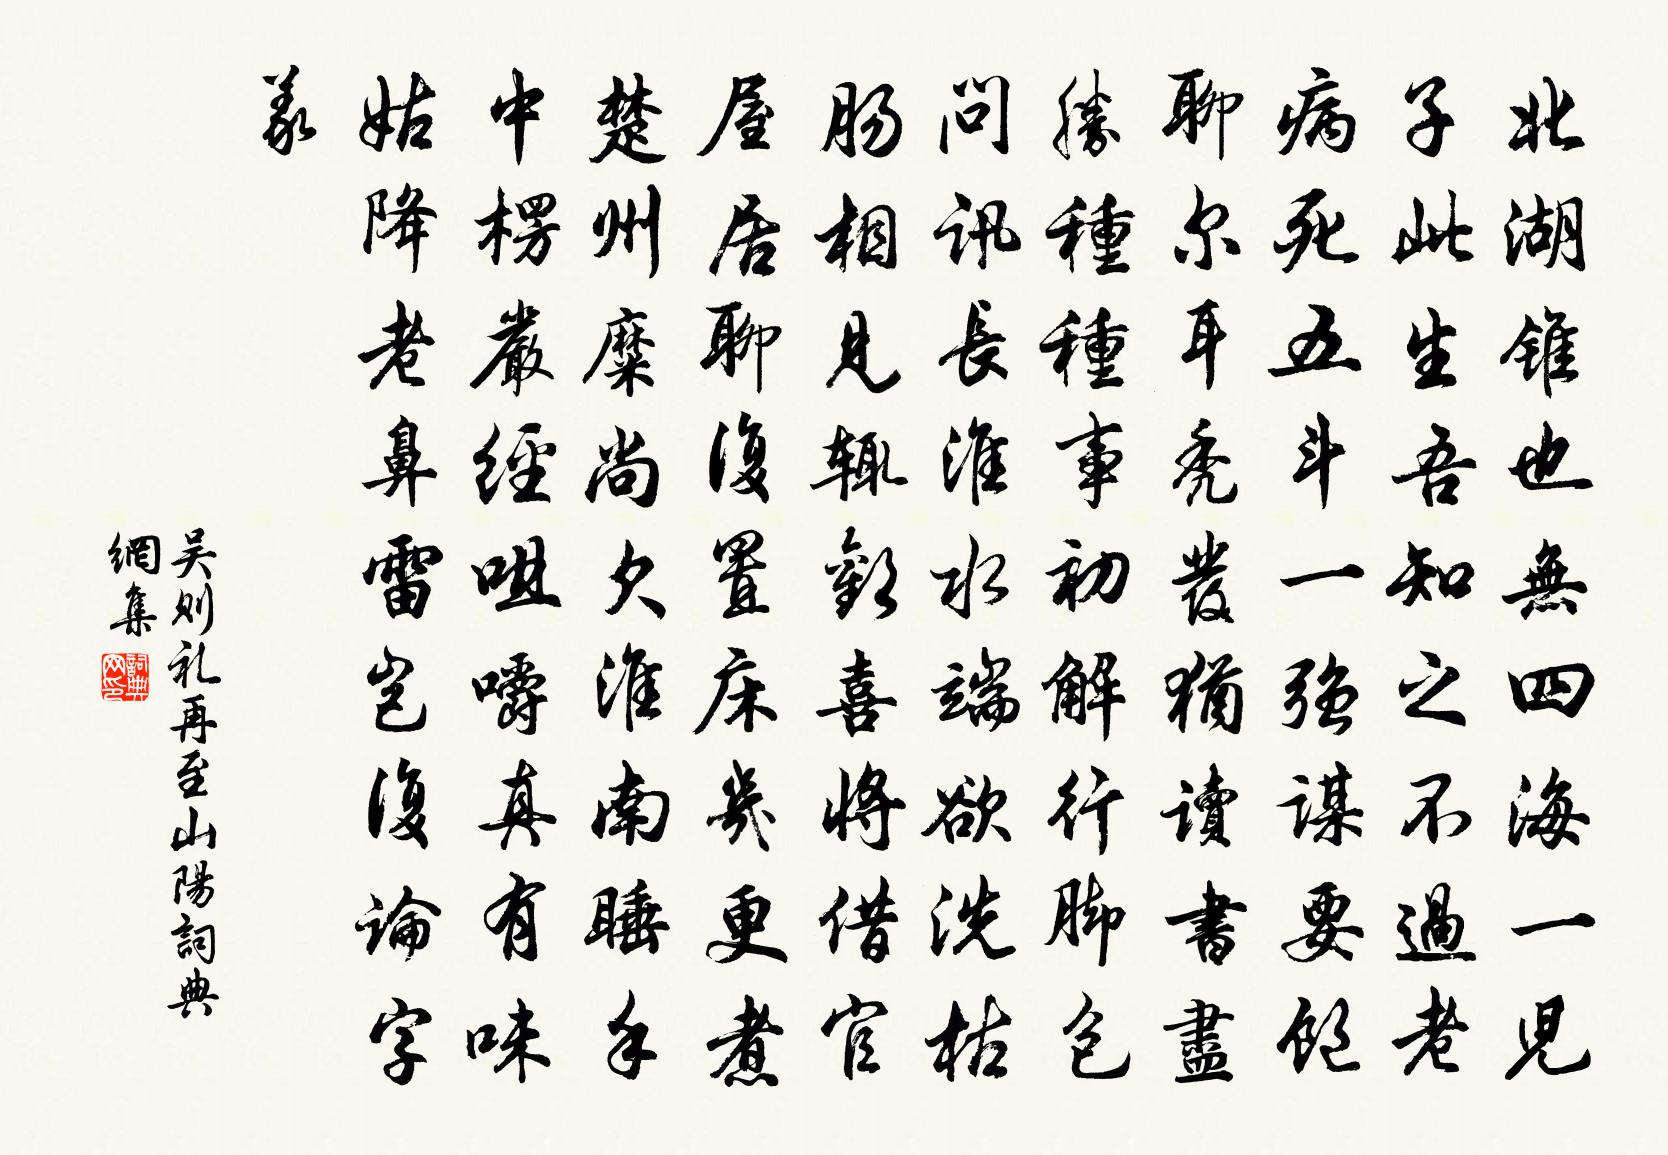 北湖錐也無四海一兒
子此生吾知之不過老
病死五斗一强謀要飽
聊尔耳禿發猶讀書盡
勝種種事初解行脚包
問訊長淮水端欲洗枯
肠相見輒歡喜將借官
屋居聊復置床幾更煮
楚州糜尚欠淮南睡手
中楞嚴經咀嚼真有味
姑降老鼻雷豈復論字
義
吴则礼再至山陽詞典
網集
詞典网印